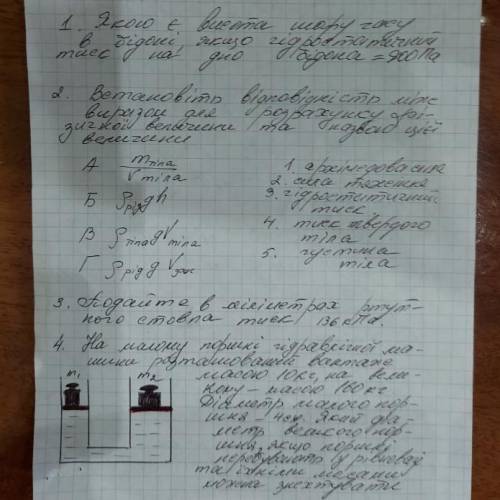 1. Якою є висота шару гасу
в бідоні, якщо гідростатичний
тиск на дно бідона = 900 Па
2. Встановіть відповідність між
виразом для розрахунку фі-
зичної величини та назвою цієї
величини
А mтіла / Vтіла
Б ρрід gh
В ρтіла gVтіла
Г ρрід g Vзан
1. архімедова сила
2. сила тяжіння
3. гідростатичний
тиск
4. тиск твердого
тіла
5. густина
тіла
3. Подайте в міліметрах ртут-
ного стовпа тиск 136 кПа.
4. На малому поршні гідравлічної ма-
шини розташований вантаж
масою 10 кг, на вели-
кому – масою 160 кг
Діаметр малого пор-
шня – 4 см. Який діа-
метр великого пор-
шня, якщо поршні
перебувають у рівновазі
та їхніми масами
можна знехтувати
m1
m2